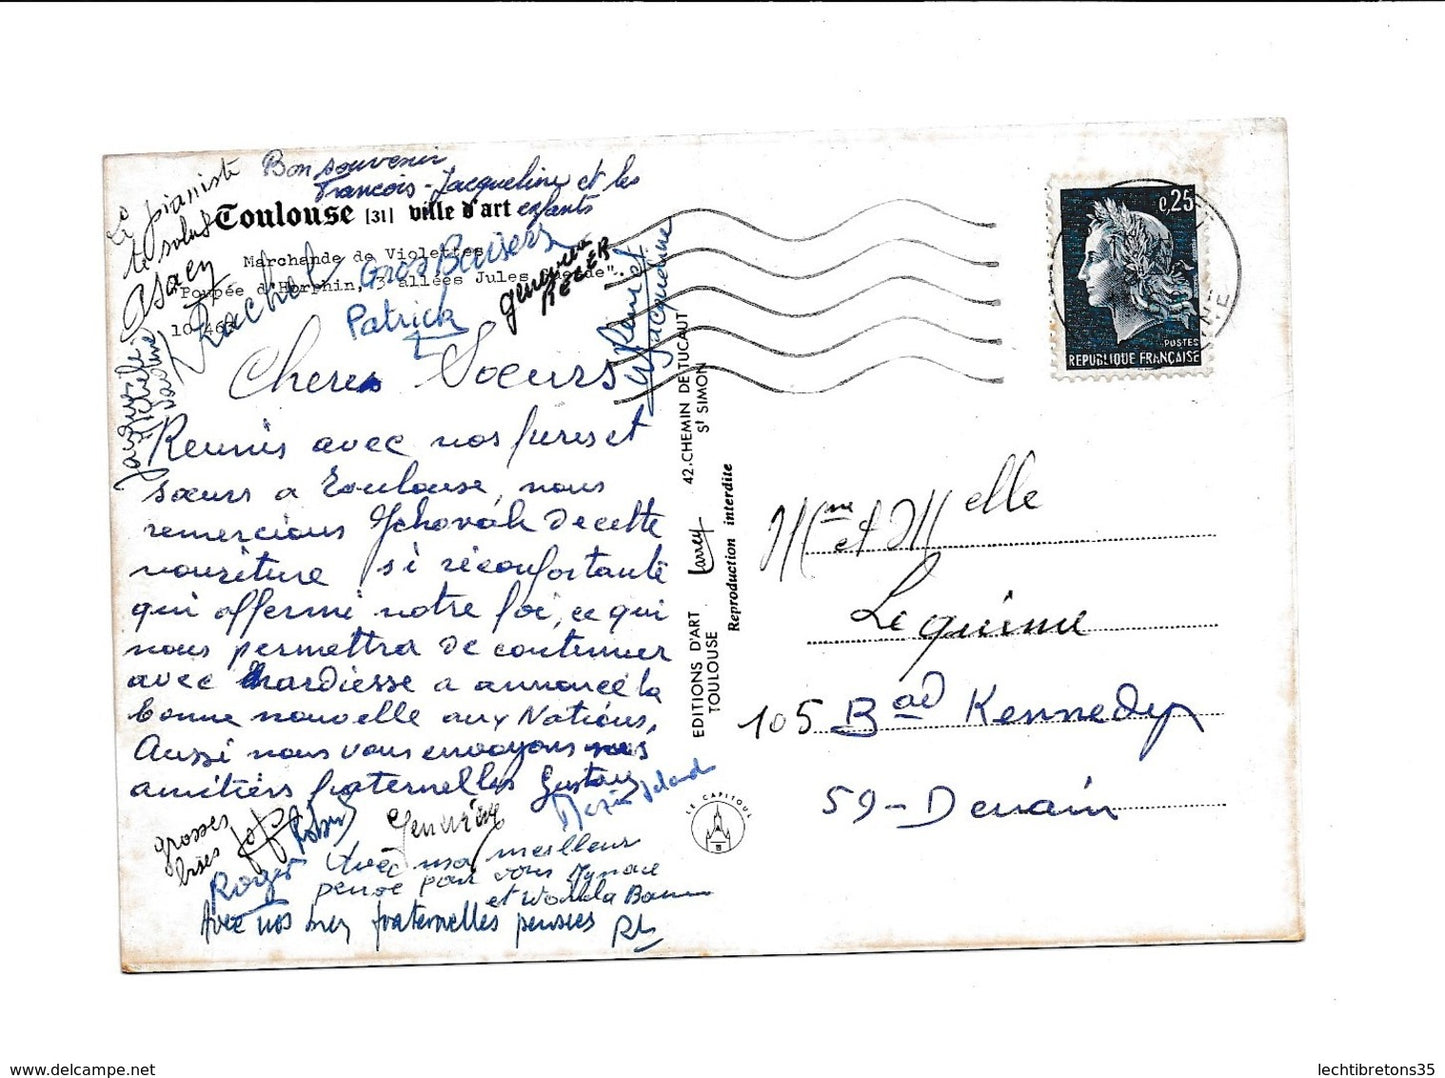 Bon souvenir
François - Jacqueline et les
enfants
Le pianiste
te salue
Toulouse [31] ville d'art
Marchande de Violettes
"Poupée d'Horphin, 3 allées Jules Guesde".
10.463
Rachel
Gros Baisers
Patrick
Geneviève
REGER
Jacqueline
Cheres Soeurs
Reunis avec nos freres et
sœurs a Toulouse, nous
remercions Jehovah de cette
nouriture si réconfortante
qui affermi notre foi, ce qui
nous permettra de continuer
avec hardiesse a annoncé la
bonne nouvelle aux Nations,
Aussi nous vous envoyons nos
amitiés fraternelles Gustave
grosses
bises
Robert
Geneviève
Roger
Avec ma meilleur
pensé pour vous
et
Avec nos fraternelles pensées
EDITIONS D'ART Larrey 42.CHEMIN DE TUCAUT
TOULOUSE St SIMON
Reproduction interdite
LE CAPITOUL
0,25
POSTES
REPUBLIQUE FRANÇAISE
Mme et Melle
Lequime
105 Bad Kennedy
59 - Denain
lechtibretons35